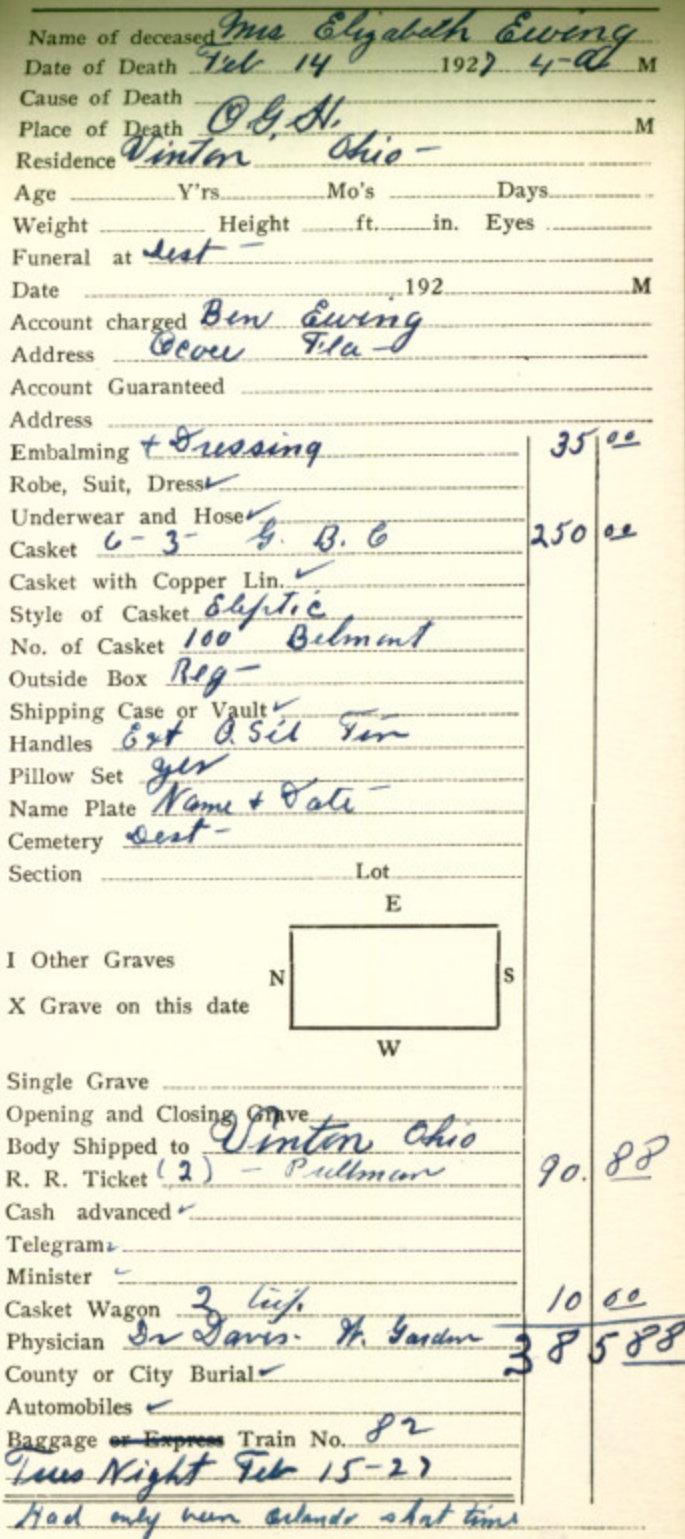 Name of deceased Mrs Elizabeth Ewing
Date of Death Feb 14 1927 4-a M
Cause of Death
Place of Death O.G.H. M
Residence Vinton Ohio -
Age Y'rs. Mo's Days
Weight Height ft. in. Eyes
Funeral at Dest -
Date 192 M
Account charged Ben Ewing
Address Ocoee Fla -
Account Guaranteed
Address
Embalming + Dressing 35 00
Robe, Suit, Dress ✓
Underwear and Hose ✓
Casket 6-3- G. B. C 250 00
Casket with Copper Lin. ✓
Style of Casket Eleptic
No. of Casket 100 Belmont
Outside Box Reg -
Shipping Case or Vault ✓
Handles Ext O. Sil
Pillow Set yes
Name Plate Name + Date -
Cemetery Dest -
Section Lot
E
I Other Graves
N S
X Grave on this date
W
Single Grave
Opening and Closing Grave
Body Shipped to Vinton Ohio
R. R. Ticket (2) - Pullman 90. 88
Cash advanced ✓
Telegram ✓
Minister ✓
Casket Wagon 2 10 00
Physician Dr Davis. W. Garden 385 88
County or City Burial ✓
Automobiles ✓
Baggage or Express Train No. 82
Tues Night Feb 15-27
Had only been Orlando short time